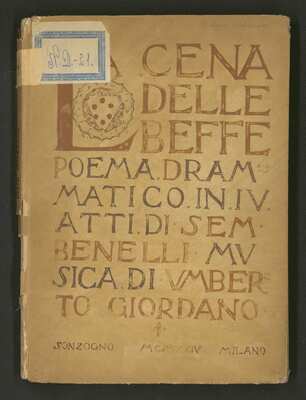 LA CENA
DELLE
BEFFE
POEMA DRAM
MATICO IN IV
ATTI DI SEM
BENELLI MV
SICA DI VMBER
TO GIORDANO
SONZOGNO MILANO